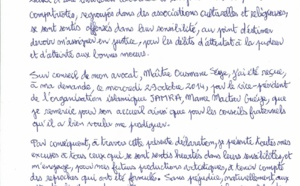 compatriotes, regroupés dans des associations culturelles et religieuses,
se sont sentis offensés dans leur sensibilité, au point d'estimer
devoir m'assigner en justice, pour les délits d'attentat à la pudeur
et d'attentat aux bonnes mœurs.
Sur conseil de mon avocat, Maître Ousmane Sèye, j'ai été reçue,
à ma demande, ce mercredi 29 octobre 2014, par le vice-président
de l'organisation islamique JAMRA, Mame Mactar Guèye, que
je remercie pour son accueil ainsi que pour les conseils fraternels
qu'il a bien voulu me prodiguer.
Par conséquent, à travers cette présente déclaration, je présente toutes mes
excuses à tous ceux qui se sont sentis heurtés dans leurs sensibilités, et
m'engage, pour mes futures productions artistiques, à tenir compte
des reproches qui ont été formulés. Sans préjudice, naturellement aux